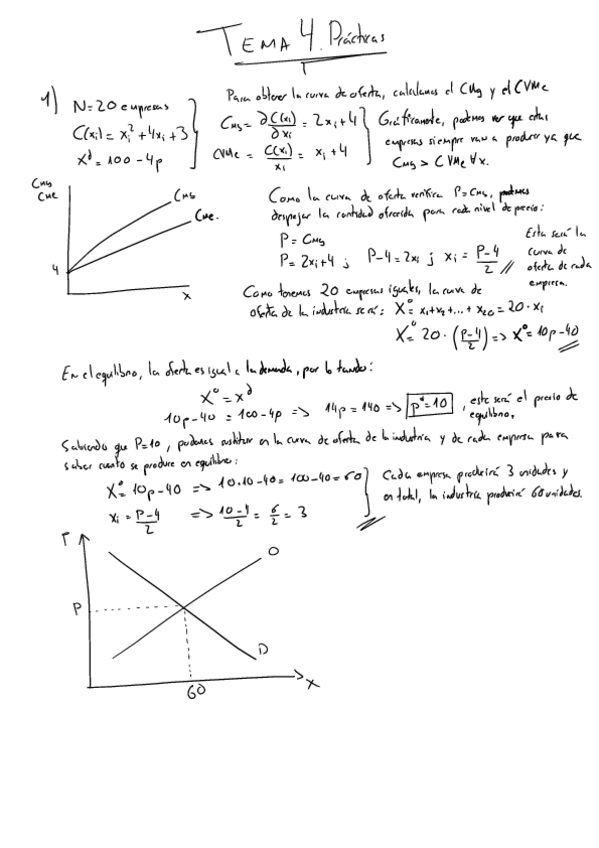 TEMA 4. Prácticas
1) N=20 empresas
C(xi) = xi² + 4xi + 3
X^d = 100 - 4p
Para obtener la curva de oferta, calculamos el CMg y el CVMe
CMg = ∂C(xi)/∂xi = 2xi + 4
CVMe = C(xi)/xi = xi + 4
Gráficamente, podemos ver que estas
empresas siempre van a producir ya que
CMg > CVMe ∀x.
CMg
CMe
CMg
CMe.
4
x
Como la curva de oferta verifica P=CMg, podemos
despejar la cantidad ofrecida para cada nivel de precio:
P = CMg
P = 2xi+4 ; P-4 = 2xi ; xi = P-4/2 //
Esta será la
curva de
oferta de cada
empresa.
Como tenemos 20 empresas iguales, la curva de
oferta de la industria será: X^o = x1+x2+...+x20 = 20·xi
X^o = 20·(P-4/2) => X^o = 10p-40
En el equilibrio, la oferta es igual a la demanda, por lo tanto:
X^o = X^d
10p-40 = 100-4p => 14p = 140 => p*=10 , este será el precio de
equilibrio.
Sabiendo que P=10, podemos sustituir en la curva de oferta de la industria y de cada empresa para
saber cuanto se produce en equilibrio:
X^o = 10p-40 => 10·10-40 = 100-40 = 60
xi = P-4/2 => 10-4/2 = 6/2 = 3
Cada empresa producirá 3 unidades y
en total, la industria producirá 60 unidades.
P
O
P
D
60
x